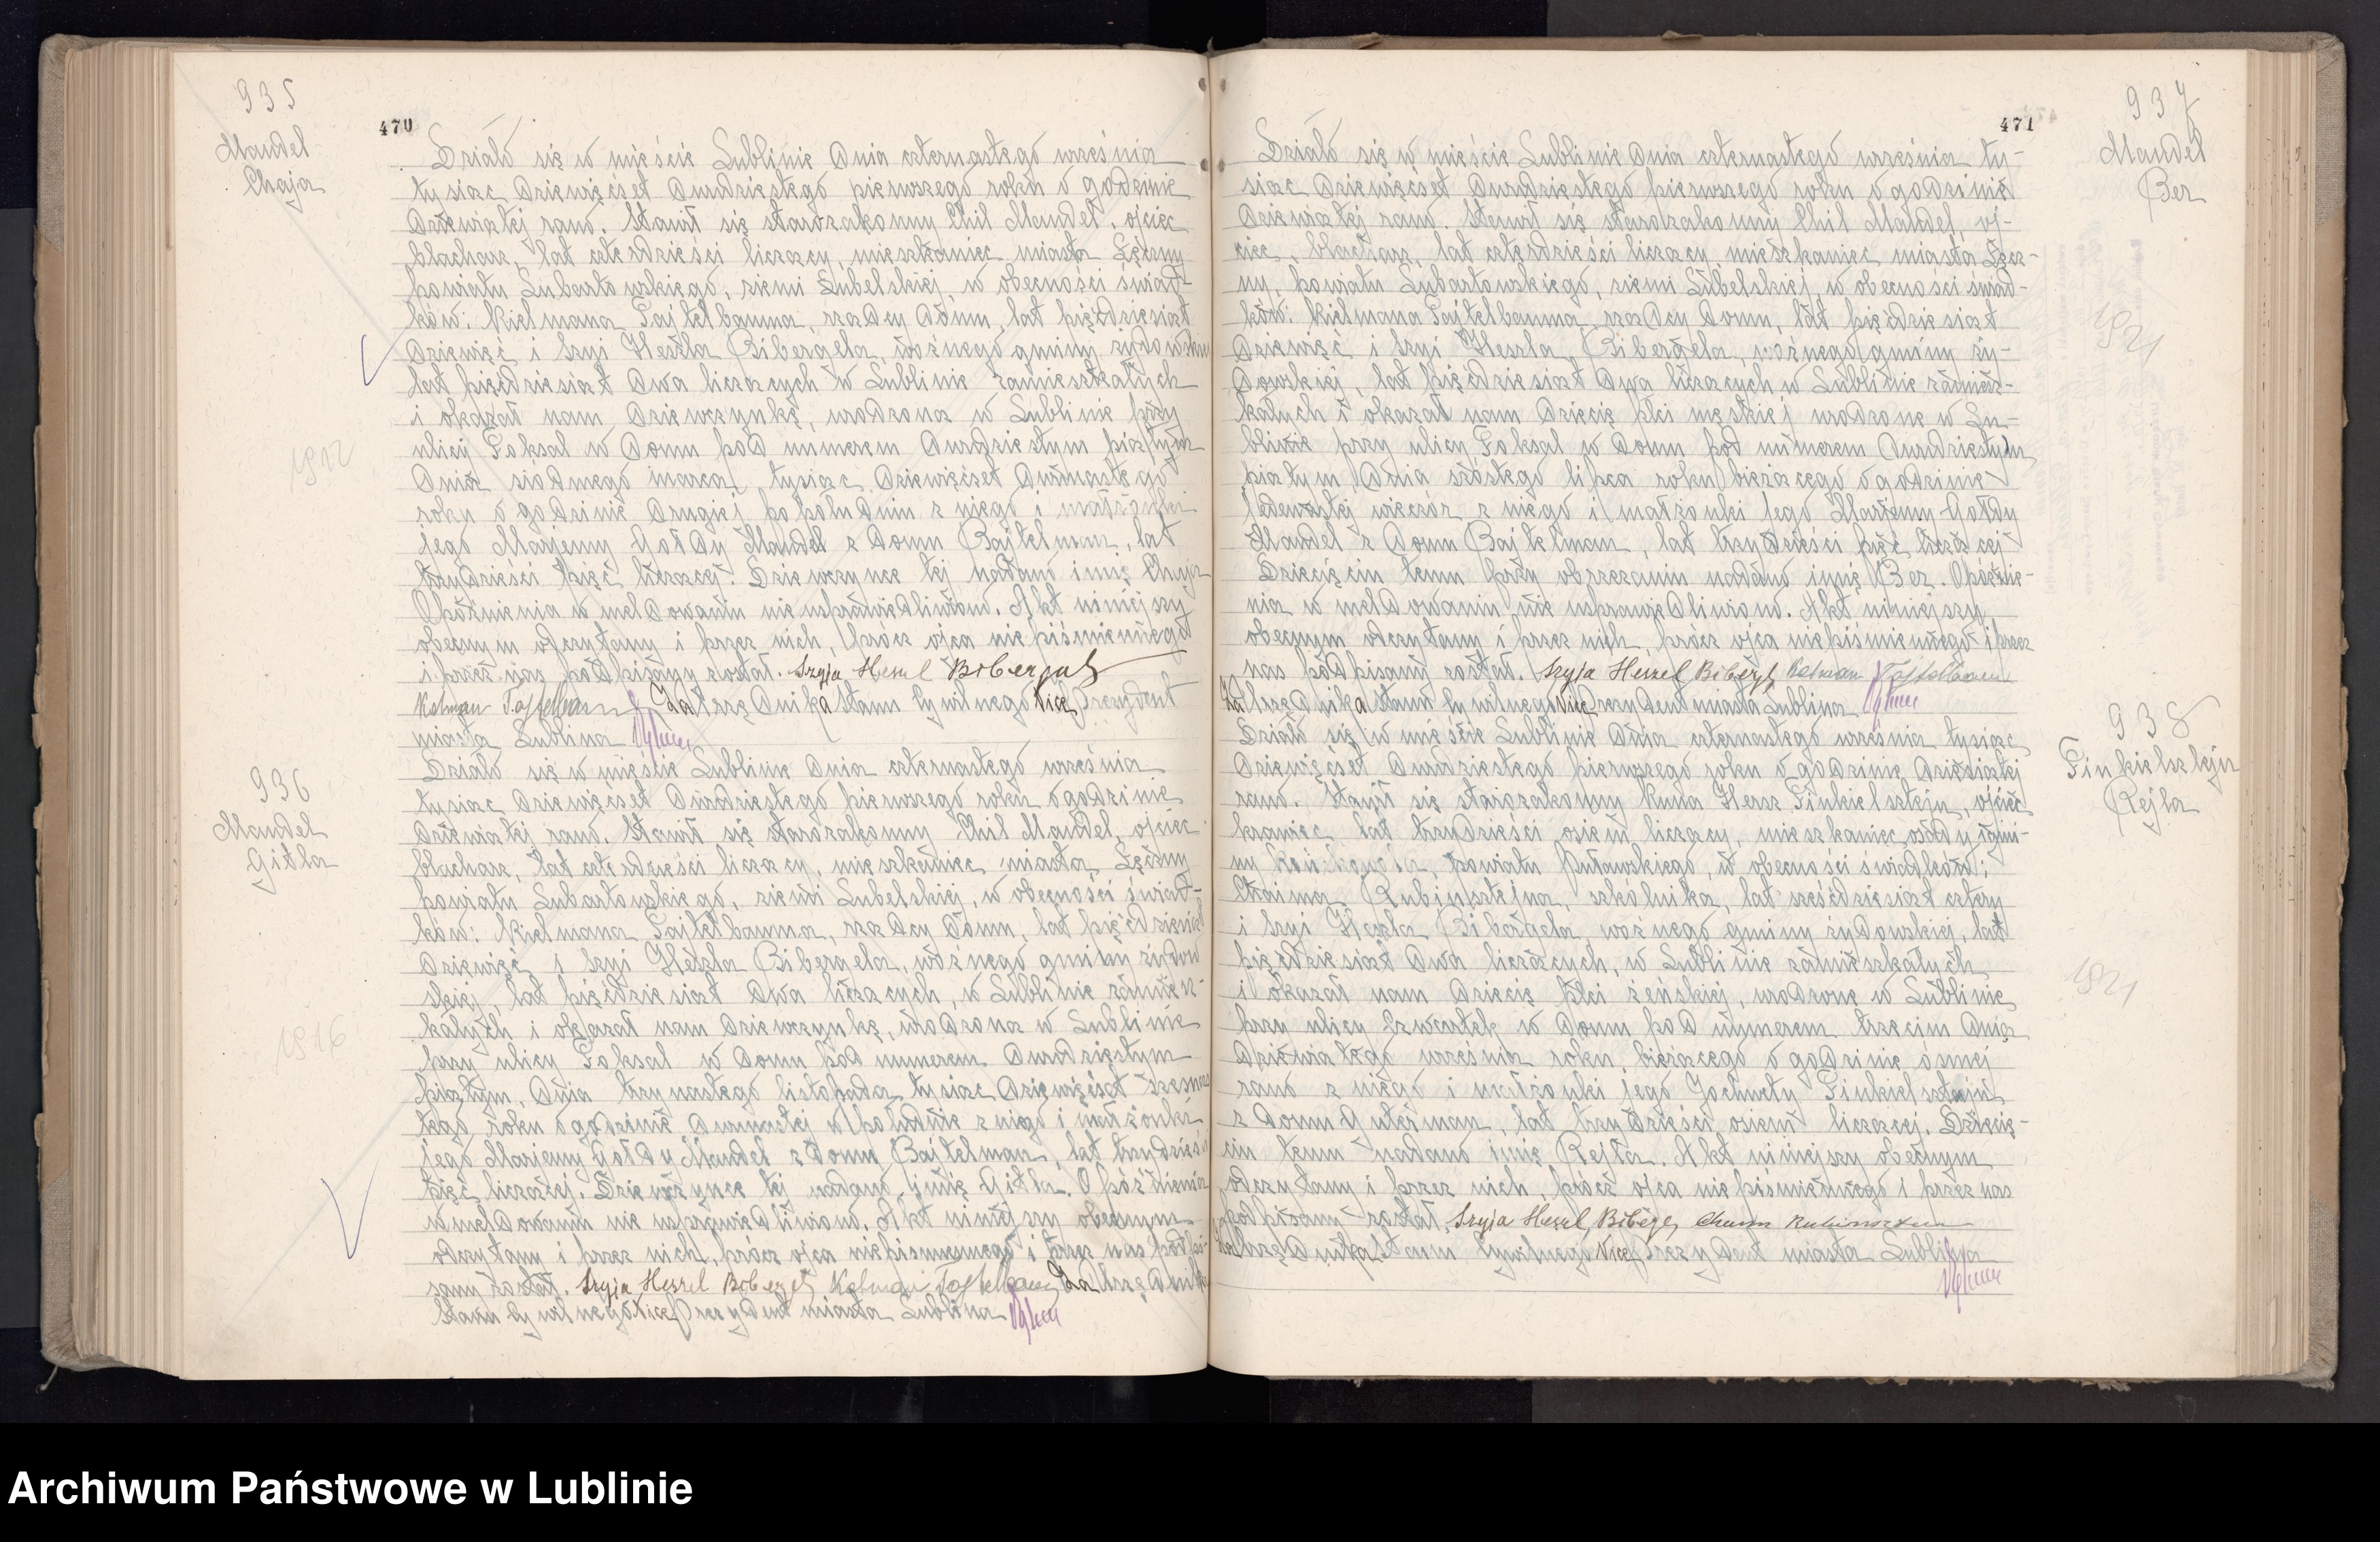 935
Mandel
Chaja
470
Działo się w mieście Lublinie dnia czternastego września
tysiąc dziewięćset dwudziestego pierwszego roku o godzinie
dziewiątej rano. Stawił się starozakonny Chil Mandel, ojciec
blacharz, lat czterdzieści liczący, mieszkaniec miasta Łęczny
powiatu Lubartowskiego, ziemi Lubelskiej, w obecności świad-
ków: Kielmana Tajtelbauma, rządcy domu, lat pięćdziesiąt
dziewięć i Szyi Heszla Bibergela, woźnego gminy żydowskiej
lat pięćdziesiąt dwa liczących w Lublinie zamieszkałych
i okazał nam dziewczynkę, urodzoną w Lublinie przy
ulicy Foksal w domu pod numerem dwudziestym piątym
dnia siódmego marca tysiąc dziewięćset dwunastego
roku o godzinie drugiej popołudniu z niego i małżonki
jego Marjemy Gołdy Mandel z domu Bajtelman, lat
trzydzieści pięć liczącej. Dziewczynce tej nadano imię Chaja
Opóźnienia w meldowaniu nie usprawiedliwiono. Akt niniejszy
obecnym odczytany i przez nich, prócz ojca niepiśmiennego
i przez nas podpisany został. Szyja Heszel Bibergal
Kelman Tajtelbaum Za Urzędnika Stanu Cywilnego Vice Prezydent
miasta Lublina
936
Mandel
Gitla
Działo się w mieście Lublinie dnia czternastego września
tysiąc dziewięćset dwudziestego pierwszego roku o godzinie
dziewiątej rano. Stawił się starozakonny Chil Mandel, ojciec
blacharz, lat czterdzieści liczący, mieszkaniec miasta Łęczny
powiatu Lubartowskiego, ziemi Lubelskiej, w obecności świad-
ków: Kielmana Tajtelbauma, rządcy domu, lat pięćdziesiąt
dziewięć i Szyi Heszla Bibergela, woźnego gminy żydow
skiej, lat pięćdziesiąt dwa liczących, w Lublinie zamiesz-
kałych i okazał nam dziewczynkę, urodzoną w Lublinie
przy ulicy Foksal w domu pod numerem dwudziestym
piątym, dnia trzynastego listopada tysiąc dziewięćset szesnas
tego roku o godzinie dwunastej w południe z niego i małżonki
jego Marjemy Gołdy Mandel z domu Bajtelman, lat trzydzieści
pięć liczącej. Dziewczynce tej nadano imię Gitla. Opóźnienia
w meldowaniu nie usprawiedliwiono. Akt niniejszy obecnym
odczytany i przez nich, prócz ojca niepiśmiennego i przez nas podpi-
sany został. Szyja Heszel Bibergel, Kelman Tajtelbaum Za Urzędnika
Stanu Cywilnego Vice Prezydent miasta Lublina
1912
1916
937
Mandel
Ber
471
Działo się w mieście Lublinie dnia czternastego września ty-
siąc dziewięćset dwudziestego pierwszego roku o godzinie
dziewiątej rano. Stawił się starozakonny Chil Mandel, oj-
ciec, blacharz, lat czterdzieści liczący, mieszkaniec miasta Łęcz-
ny, powiatu Lubartowskiego, ziemi Lubelskiej, w obecności świad-
ków: Kielmana Tajtelbauma, rządcy domu, lat pięćdziesiąt
dziewięć i Szyi Heszla Bibergela, woźnego gminy ży-
dowskiej, lat pięćdziesiąt dwa liczących w Lublinie zamiesz-
kałych i okazał nam dziecię płci męskiej urodzone w Lu-
blinie przy ulicy Foksal w domu pod numerem dwudziestym
piątym dnia szóstego lipca roku bieżącego o godzinie
jedenastej wieczór z niego i małżonki jego Marjemy Gołdy
Mandel z domu Bajtelman, lat trzydzieści pięć liczącej
Dziecięciu temu przy obrzezaniu nadano imię Ber. Opóźnie-
nia w meldowaniu nie usprawiedliwiono. Akt niniejszy
obecnym odczytany i przez nich, prócz ojca niepiśmiennego i przez
nas podpisany został. Szyja Heszel Bibergel, Kelman Tajtelbaum
Za Urzędnika Stanu Cywilnego Vice Prezydent miasta Lublina
1921
938
Finkielsztejn
Rejla
Działo się w mieście Lublinie dnia czternastego września tysiąc
dziewięćset dwudziestego pierwszego roku o godzinie dziesiątej
rano. Stawił się starozakonny Kuna Hersz Finkielsztejn, ojciec
krawiec, lat trzydzieści osiem liczący, mieszkaniec osady gmi-
ny powiatu Puławskiego, w obecności świadków:
Chaima Rubinsztejna, szkolnika, lat sześćdziesiąt cztery
i Szyi Heszla Bibergela, woźnego gminy żydowskiej, lat
pięćdziesiąt dwa liczących, w Lublinie zamieszkałych
i okazał nam dziecię płci żeńskiej, urodzone w Lublinie
przy ulicy Czwartek w domu pod numerem trzecim dnia
dziewiątego września roku bieżącego o godzinie ósmej
rano z niego i małżonki jego Jochwety Finkielsztejn
z domu Guterman, lat trzydzieści osiem liczącej. Dziecię-
ciu temu nadano imię Rejla. Akt niniejszy obecnym
odczytany i przez nich, prócz ojca niepiśmiennego i przez nas
podpisany został. Szyja Heszel Bibergel, Chaim Rubinsztein
Za Urzędnika Stanu Cywilnego Vice Prezydent miasta Lublina
1921
Archiwum Państwowe w Lublinie